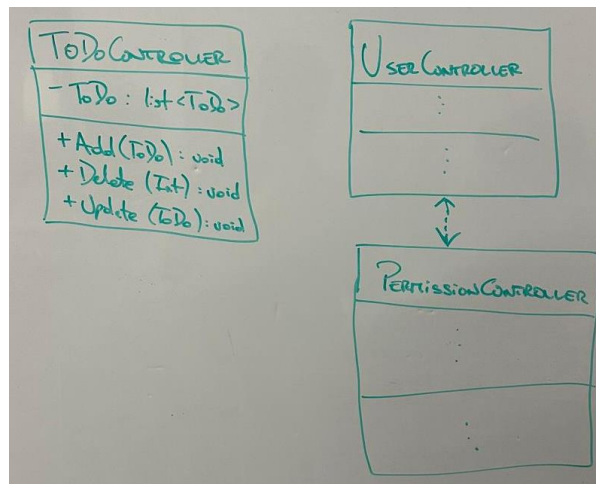 ToDoController
- ToDo : list<ToDo>
+ Add(ToDo) : void
+ Delete (Int) : void
+ Update (ToDo) : void
UserController
PermissionController